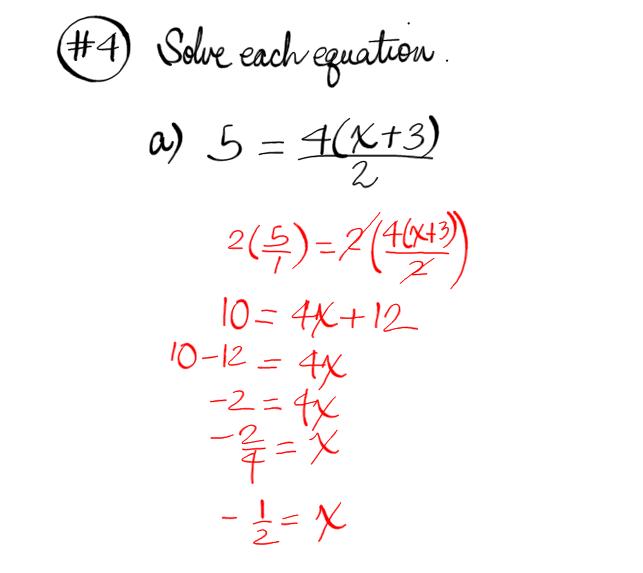 #4 Solve each equation.
a) 5 = 4(x+3)/2
2(5/1) = 2(4(x+3)/2)
10 = 4x+12
10-12 = 4x
-2 = 4x
-2/4 = x
-1/2 = x